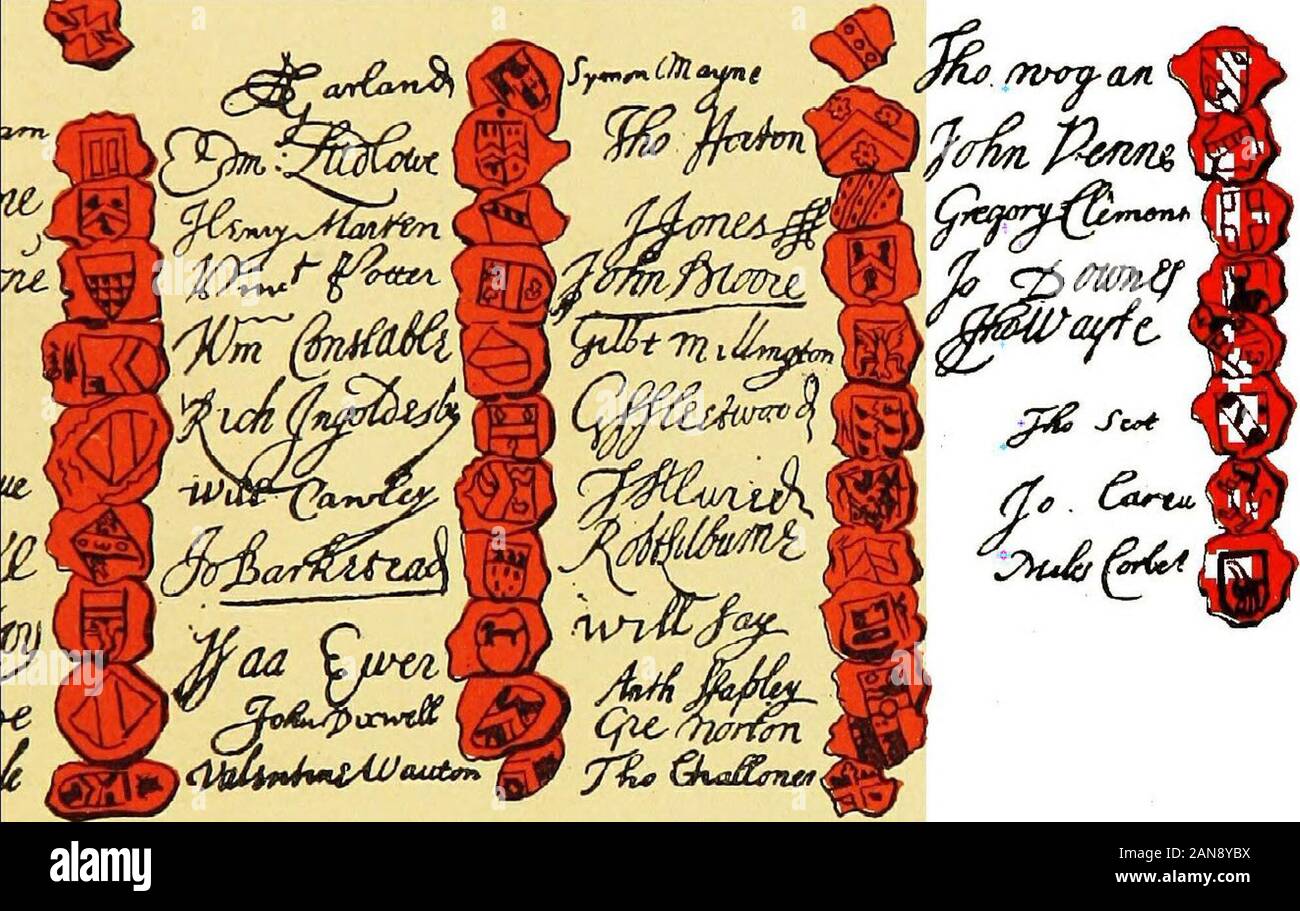 Har Garland
Edm: Ludlowe
Henry Marten
Vinct Potter
Wm Constable
Rich Ingoldesby
Will Cawley
Jo Barkestead
Isaa Ewer
John Dixwell
Valentine Wauton
Symon Mayne
Tho Horton
J Jones
John Moore
Gilbt Millington
G ffleetwood
J Alured
Robt Lilburne
Will Say
Anth Stapley
Gre Norton
Tho Challoner
Tho. Wogan
John Venne
Gregory Clement
Jo Downes
Tho Wayte
Tho Scot
Jo. Carew
Miles Corbet
alamy
Image ID: 2AN8YBX
www.alamy.com